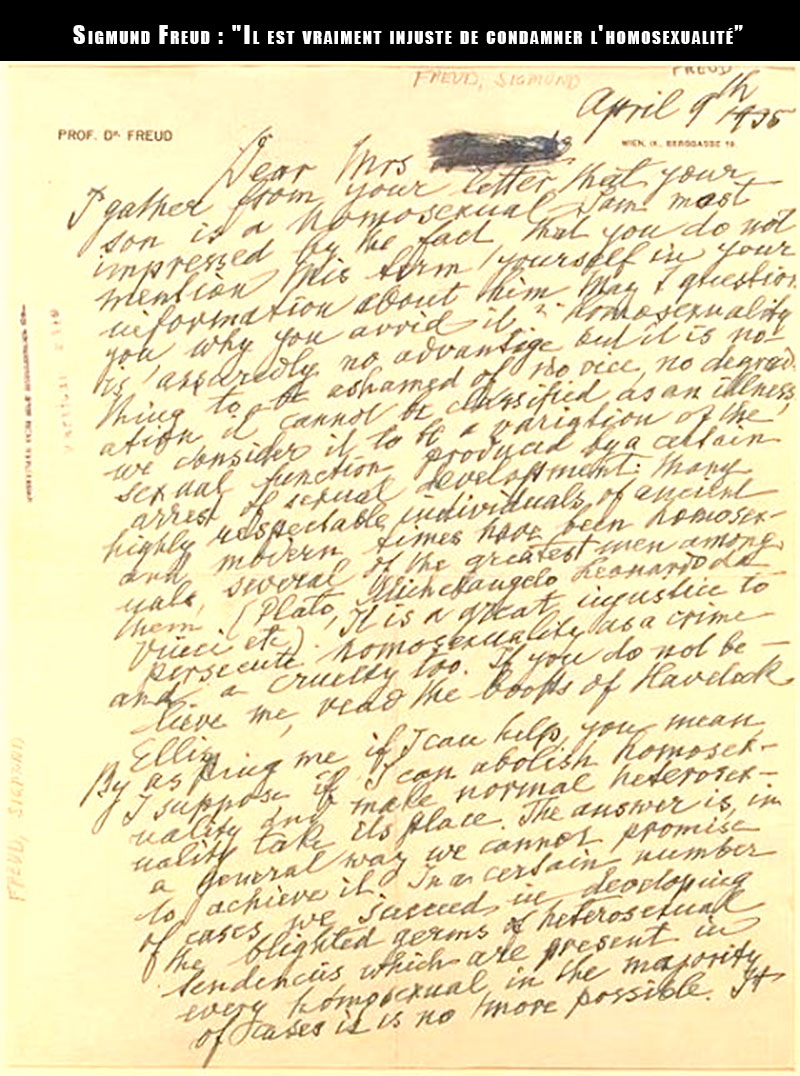 Sigmund Freud : "Il est vraiment injuste de condamner l'homosexualité”
FREUD, SIGMUND
FREUD
April 9th 1935
PROF. DR. FREUD
WIEN, IX., BERGGASSE 19.
Dear Mrs
I gather from your letter that your
son is a homosexual. I am most
impressed by the fact, that you do not
mention this term yourself in your
information about him. May I question
you why you avoid it? Homosexuality
is assuredly no advantage but it is no-
thing to be ashamed of, no vice, no degrad-
ation it cannot be classified as an illness;
we consider it to be a variation of the
sexual function produced by a certain
arrest of sexual development. Many
highly respectable individuals of ancient
and modern times have been homosex-
uals, several of the greatest men among
them (Plato, Michelangelo Leonardo da
Vinci etc). It is a great injustice to
persecute homosexuality as a crime
and a cruelty too. If you do not be-
lieve me, read the books of Havelock
Ellis.
By asking me if I can help, you mean,
I suppose if I can abolish homosex-
uality and make normal heterosex-
uality take its place. The answer is, in
a general way we cannot promise
to achieve it. In a certain number
of cases we succeed in developing
the blighted germs of heterosexual
tendencies which are present in
every homosexual, in the majority
of cases it is no more possible. It
FREUD, SIGMUND